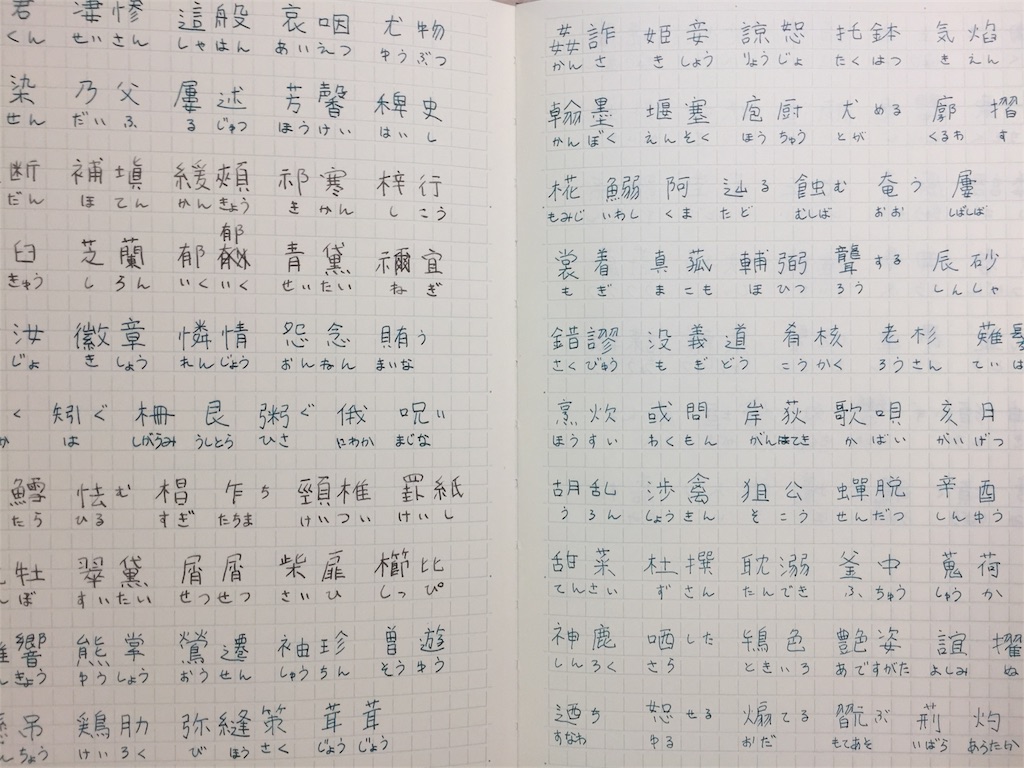 君 凄惨 這般 哀咽 尤物
くん せいさん しゃはん あいえつ ゆうぶつ
染 乃父 屢述 芳馨 稗史
せん だいふ るじゅつ ほうけい はいし
断 補塡 緩頰 祁寒 梓行
だん ほてん かんきょう きかん しこう
郁
臼 芝蘭 郁 青黛 禰宜
きゅう しろん いくいく せいたい ねぎ
汝 徽章 憐情 怨念 賄う
じょ きしょう れんじょう おんねん まいな
く 矧ぐ 柵 艮 粥ぐ 俄 呪い
か は しがらみ うしとら ひさ にわか まじな
鱈 怯む 椙 乍ち 頸椎 罫紙
たら ひる すぎ たちま けいつい けいし
牡 翠黛 屑屑 柴扉 櫛比
ぼ すいたい せつせつ さいひ しっぴ
響 熊掌 鶯遷 袖珍 曽遊
きょう ゆうしょう おうせん しゅうちん そうゆう
吊 鶏肋 弥縫策 茸茸
ちょう けいろく びほうさく じょうじょう
姦詐 姫妾 諒恕 托鉢 気焰
かんさ きしょう りょうじょ たくはつ きえん
翰墨 堰塞 庖厨 尤める 廓 摺
かんぼく えんそく ほうちゅう とが くるわ す
椛 鰯 阿 辿る 蝕む 奄う 屢
もみじ いわし くま たど むしば おお しばしば
裳着 真菰 輔弼 聾する 辰砂
もぎ まこも ほひつ ろう しんしゃ
錯謬 没義道 肴核 老杉 薙
さくびゅう もぎどう こうかく ろうさん てい は
烹炊 或問 岸荻 歌唄 亥月
ほうすい わくもん がんてき かばい がいげつ
胡乱 渉禽 狙公 蟬脱 辛酉
うろん しょうきん そこう せんだつ しんゆう
甜菜 杜撰 耽溺 釜中 蒐荷
てんさい ずさん たんでき ふちゅう しゅうか
神鹿 晒した 鴇色 艶姿 誼 擢
しんろく さら ときいろ あですがた よしみ ぬ
迺ち 恕せる 煽てる 翫ぶ 荊 灼
すなわ ゆる おだ もてあそ いばら あらたか